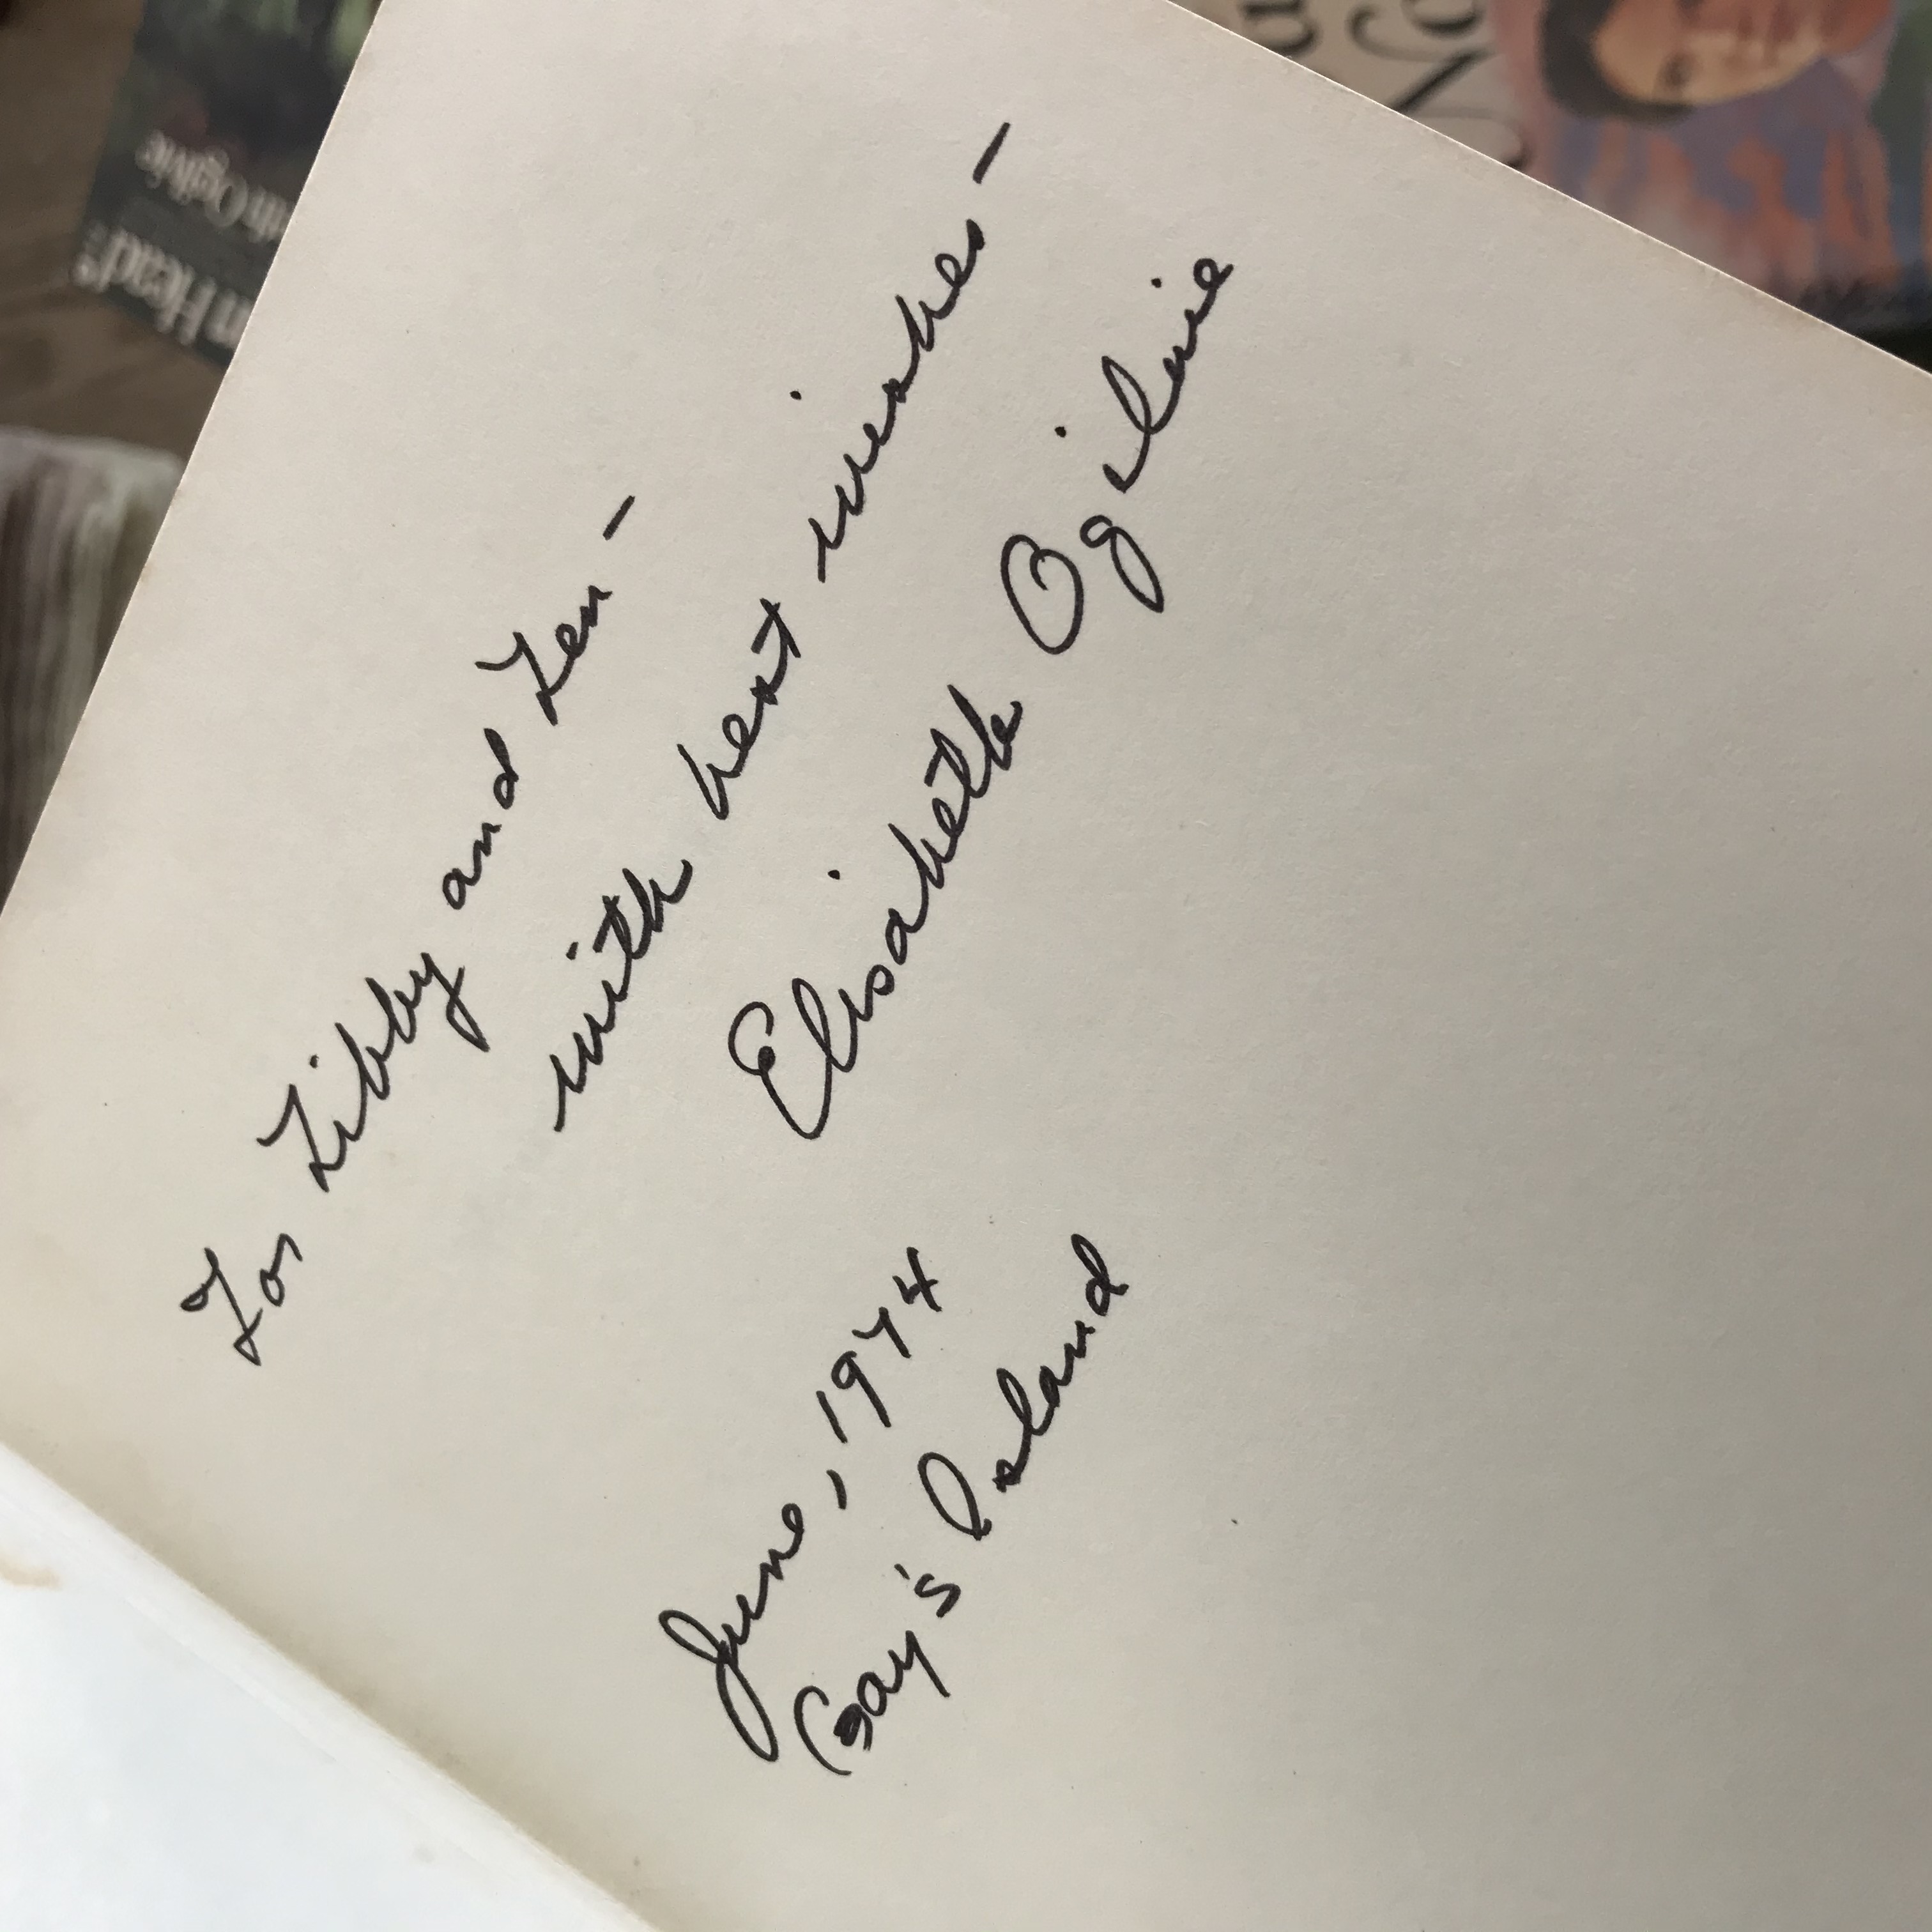 For Libby and Len -
with best wishes -
Elisabeth Ogilvie
June, 1974
Gay's Island
Head
Ogilvie
No